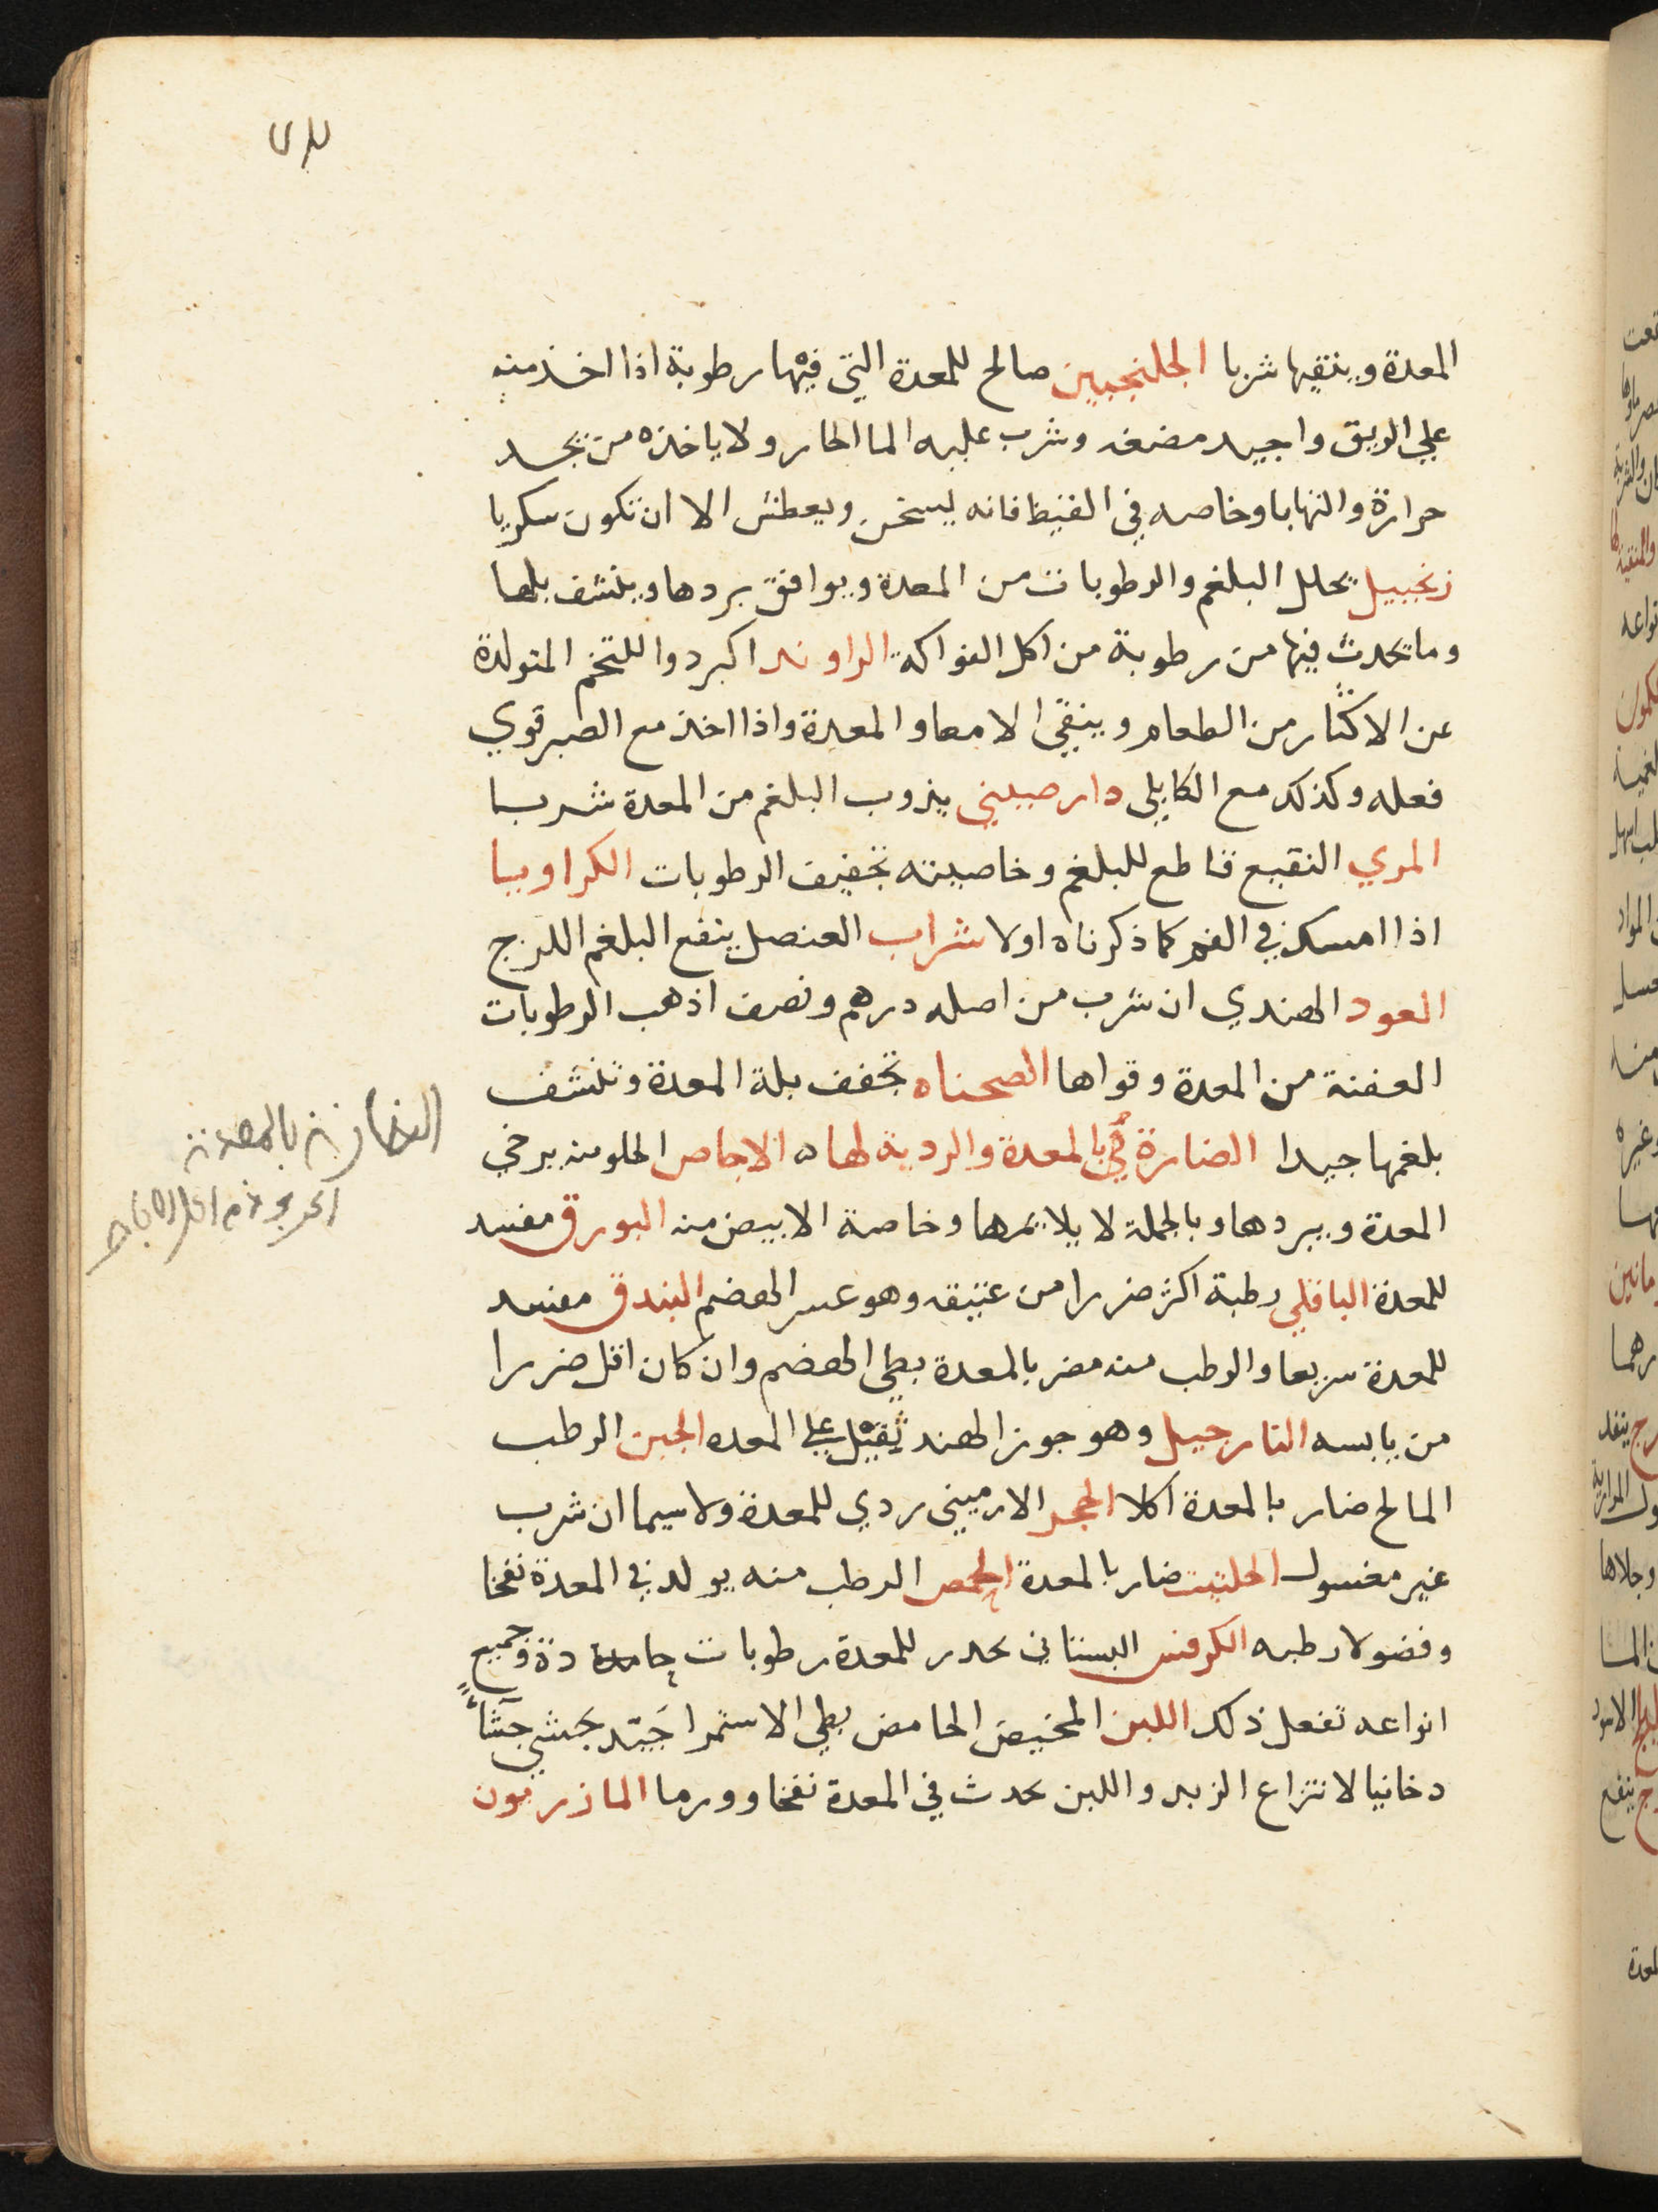 المعدة وينقيها شربا الجلنجبين صالح للمعدة التي فيها رطوبة اذا اخذ منه
علي الريق واجيد مضغه وشرب عليه الما الحار ولا ياخذه من يجد
حرارة والتهابا وخاصه في القيظ فانه يسخن ويعطش الا ان تكون سكريا
زنجبيل يحلل البلغم والرطوبات من المعدة ويوافق بردها وينشف بلها
وما يحدث فيها من رطوبة من اكل الفواكه الراوند اكبر دوا للتخم المتولدة
عن الاكثار من الطعام وينقي الامعا والمعدة واذا اخذ مع الصبر قوي
فعله وكذلك مع الكابلي دارصيني يذوب البلغم من المعدة شربا
المري النقيع قاطع للبلغم وخاصيته تجفيف الرطوبات الكراويا
اذا امسك في الفم كما ذكرناه اولا شراب العنصل ينفع البلغم اللزج
العود الهندي ان شرب من اصله درهم ونصف اذهب الرطوبات
العفنة من المعدة وقواها الصحناه تجفف بلة المعدة وتنشف
بلغمها جيدا الضارة بالمعدة والردية لها ه الاجاص الحلو منه يرخي
المعدة ويبردها وبالجملة لا يلايمها وخاصة الابيض منه البورق مفسد
للمعدة الباقلي رطبة اكثر ضررا من عتيقه وهو عسر الهضم البندق مفسد
للمعدة سريعا والرطب منه مضر بالمعدة بطي الهضم وان كان اقل ضررا
من يابسه النارجيل وهو جوز الهند ثقيل علي المعده الجبن الرطب
المالح ضار بالمعدة اكلا الحجر الارميني ردي للمعدة ولا سيما ان شرب
غير مغسول الحلتيت ضار بالمعدة الحمص الرطب منه يولد في المعدة نفخا
وفضولا رطبه الكرفس البستاني يحدر للمعدة رطوبات حادة وجميع
انواعه تفعل ذلك اللبن المخيض الحامض بطي الاستمرا جيد يجشي جشاً
دخانيا لانتزاع الزبد واللبن يحدث في المعدة نفخا وورما المازريون
الضارة بالمعدة